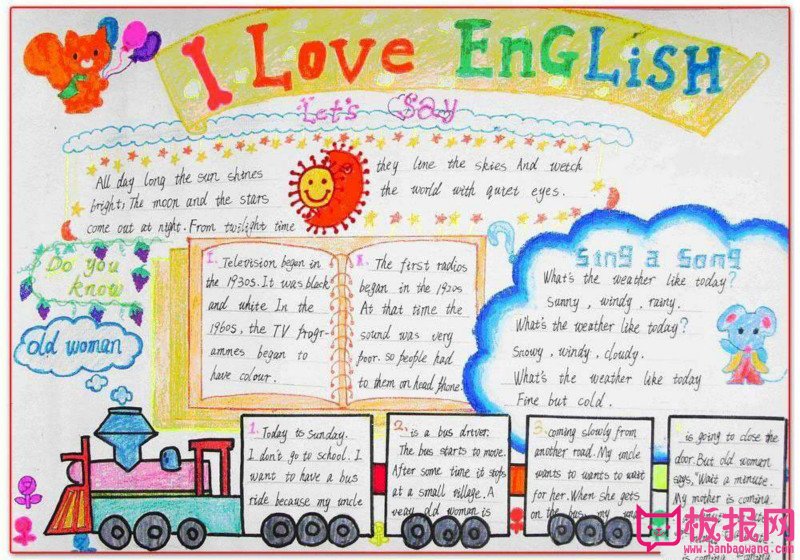 I Love EnGLiSH
Let's Say
All day long the sun shines
bright; The moon and the stars
come out at night. From twilight time
they line the skies And wetch
the world with quiet eyes.
Do you
know
old woman
1. Television began in
the 1930s. It was black
and white In the
1960s, the TV progr-
ammes began to
have colour.
The first radios
began in the 1920s
At that time the
sound was very
poor. so people had
to them on head phone
Sing a Song
What's the weather like today?
Sunny, windy, rainy.
What's the weather like today?
Snowy, windy, cloudy.
What's the weather like today
Fine but cold.
1. Today is Sunday.
I don't go to school. I
want to have a bus
ride because my uncle
2. is a bus driver.
The bus starts to move.
After some time it stops
at a small village. A
very old woman is
3 coming slowly from
another road. My uncle
wants to wants to wait
for her. When she gets
on the bus, my uncle
is going to close the
door. But old woman
says, "Wait a minute.
My mother is coming.
板报网
www.banbaowang.com